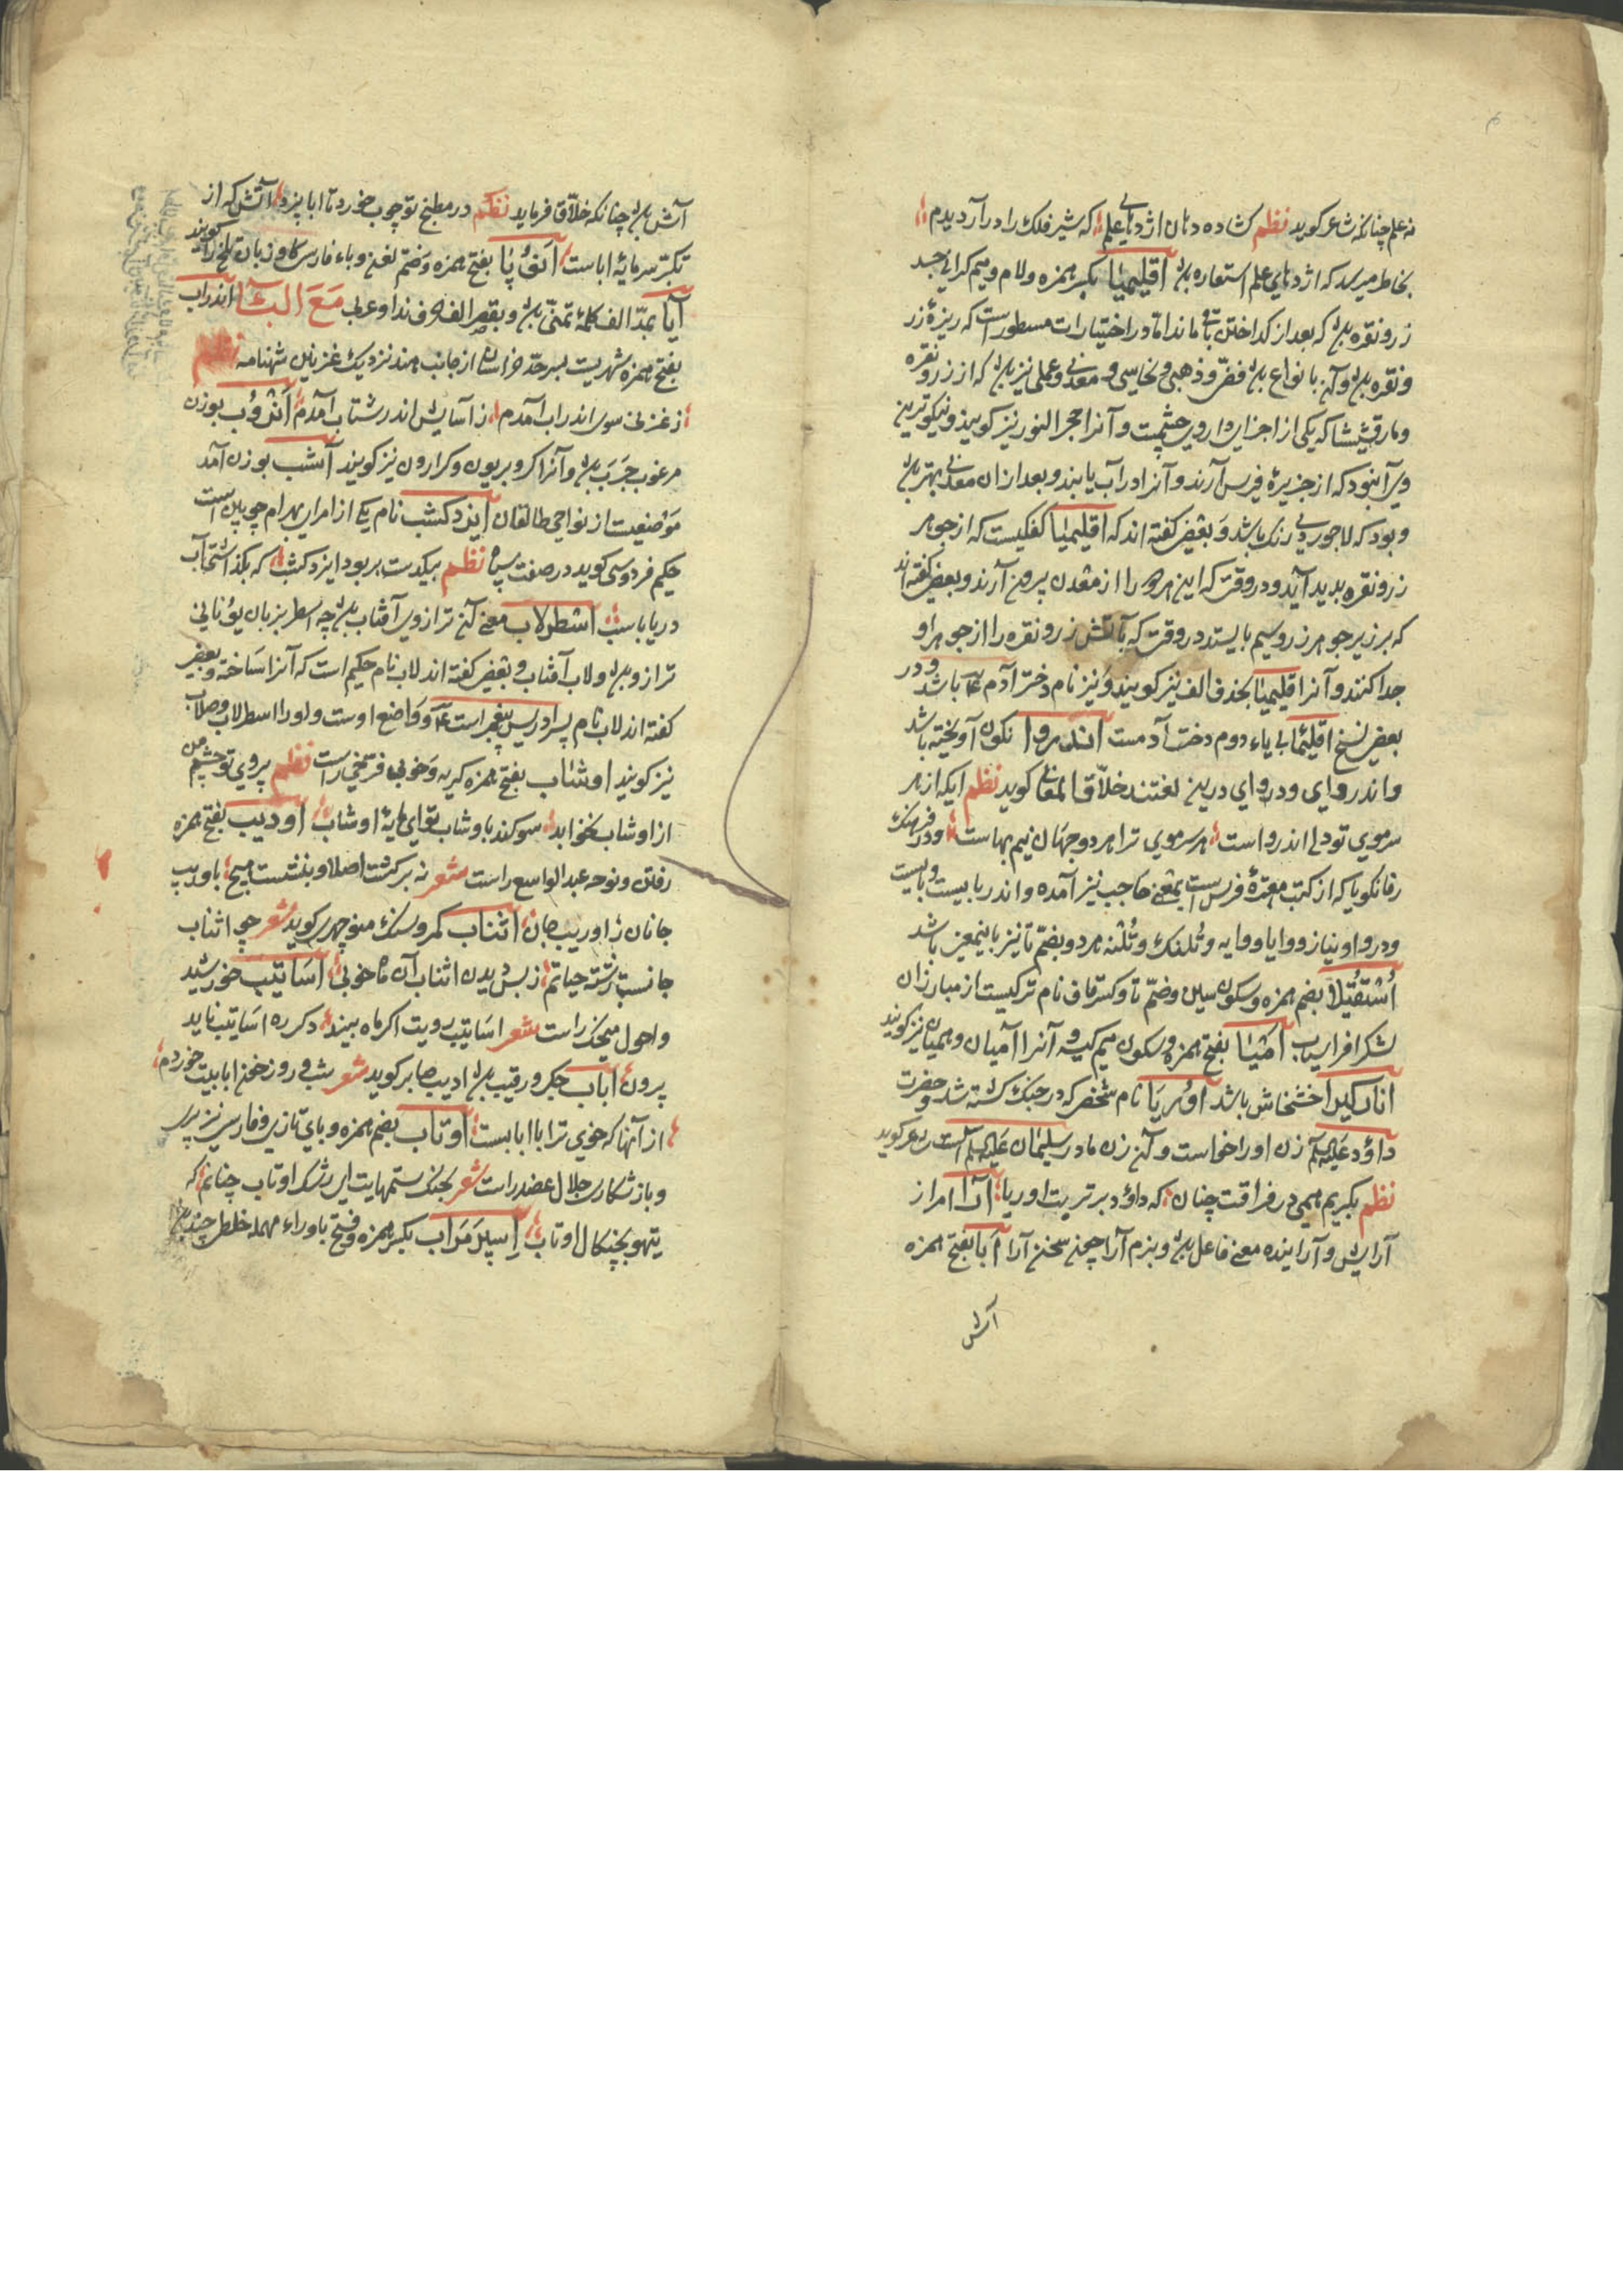 نه علم چنانکه شاعر کوید نظم کشاده دهان اژدهای علم که شیر فلک را در آرد بدم
بخاطر میرسد که اژدهای علم استعاره بود اقلیمیا بکسر همزه و لام و میم
زر و نقره بود که بعد از کداختن باقی ماند اما در اختیارات مسطور است که ریزهٔ زر
و نقره بود و آن بانواع بود فضی و ذهبی و نحاسی و معدنی و عملی نیز بود که از زر و نقره
و مارقشیشا که یکی از اجزای داروی چشمست و آنرا حجر النور نیز کویند و نیکوترین
وی آن بود که از جزیرهٔ قبرس آرند و آنرا در آب یابند و بعد از آن معدنی بهتر بود
و بود که لاجوردی رنک باشد و بعضی کفته اند که اقلیمیا کفکیست که از جوهر
زر و نقره پدید آید در وقت که این هر دو را از معدن بیرون آرند و بعضی کفته اند
که بر زیر جوهر زر و سیم بایستد در وقت که بآتش زر و نقره را از جوهر او
جدا کنند و آنرا قلیمیا بحذف الف نیز کویند و نیز نام دختر آدم ع باشد و در
بعضی نسخ اقلیما بی یاء دوم دخت آدمست اندروا نکون آویخته باشد
و اندروای و دروای درین لغتند خلاق المعانی کوید نظم ایکه از هر
سر موی تو دلی اندرواست هر سر موی ترا هر دو جهان نیم بهاست و در فرهنک
رفانکویا که از کتب معتبرهٔ فرس است بمعنی حاجب نیز آمده و اندربایست و بایست
و دروا و نیاز و وایا و وایه و تلنک و تلنه هر دو بضم تا نیز باینمعنی باشد
اُشتقتیلا بضم همزه و سکون سین و ضم تا و کسر قاف نام ترکیست از مبارزان
لشکر افراسیاب امیا بفتح همزه و سکون میم کیسه و آنرا آمیان و همیان نیز کویند
انارکیرا خشخاش باشد اوریا نام شخصی که در جنک کشته شد و حضرت
داؤد علیه السلام زن او را خواست و آن زن مادر سلیمان علیه السلام است شاعر کوید
نظم بکریم همی در فراقت چنان که داؤد بر تربت اوریا آرا امر از
آرایش و آراینده معنی فاعل بود و بزم آرا چمن سخن آرا اَبا بفتح همزه
آش
آش بود چنانکه خلاق فرماید نظم در مطبخ تو چوب خورد تا ابا پزد آتش که از
تکبر سرمایهٔ اباست بفتح همزه و ضم و باء فارسی کاو زبان تلخ را کویند
آیا بمد الف کلمهٔ تمنی بود و بقصر الف حرف ندا و عربی مَعَ الباءِ اندراب
بفتح همزه شهریست بسرحد خراسان از جانب هند نزدیک غزنین شهنامه نظم
ز غزنی سوی اندراب آمدم ز آسایش اندر شتاب آمدم انروب بوزن
مرغوب جرب بود و آنرا کروبریون و کرارون نیز کویند آشب بوزن آمد
موضعیست از نواحی طالقان ایزدکشب نام یکی از امرای بهرام چوبین است
حکیم فردوسی کوید در صفت سپاه نظم بیکدست بر بود ایزدکشب که بکذاشتی آب
دریا باسب اسطرلاب معنی آن ترازوی آفتاب بود چه اسطر بزبان یونانی
ترازو بود و لاب آفتاب و بعضی کفته اند لاب نام حکیم است که آنرا ساخته و بعضی
کفته اند لاب نام پسر ادریس پیغمبر است ع و واضع اوست و او را اسطرلاب و صلاب
نیز کویند اوشاب بفتح همزه کریه و خوابی فرخی راست نظم بروی تو چشم من
از اوشاب نخوابد سوکند باوشاب تو ای مایهٔ اوشاب اوریب بفتح همزه
رفتن و نوحه عبد الواسع راست شعر نه برکشت اصلا و ننشست هیچ باوریب
جانان ز اوریب جان اثناب کمر و سنک منوچهری کوید شعر چو اثناب
جانست رشتهٔ حیاتم ز بس دیدن اثناب آن خوبی اساتیب خورشید
و احول منجیک راست شعر اساتیب رویت اکر ماه بیند دکر ره اساتیب ناید
برون اباب جکر و رقیب بود ادیب صابر کوید شعر شب و روز خون ابابت خوردم
از آنها که خوی ترا با ابابست اوتاب بضم همزه و بای تازی و فارسی نیز پر
و باز شکاری جلال عضد راست شعر بچنک ستمهایت ای رشک اوتاب چنانم که
تیهو بچنکال اوتاب اسپرمراب بکسر همزه و فتح با و راء مهمله